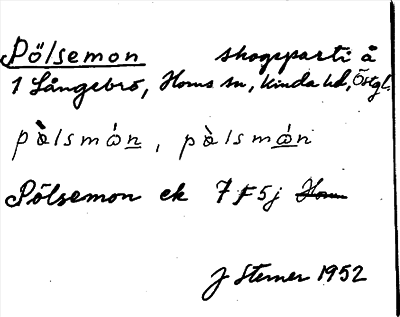 Pölsemon skogsparti å
1 Långebro, Horns sn, Kinda hd, Östgl.
pòlsmón, pòlsmón
Pölsemon ek 7F5j Horn
J Sterner 1952